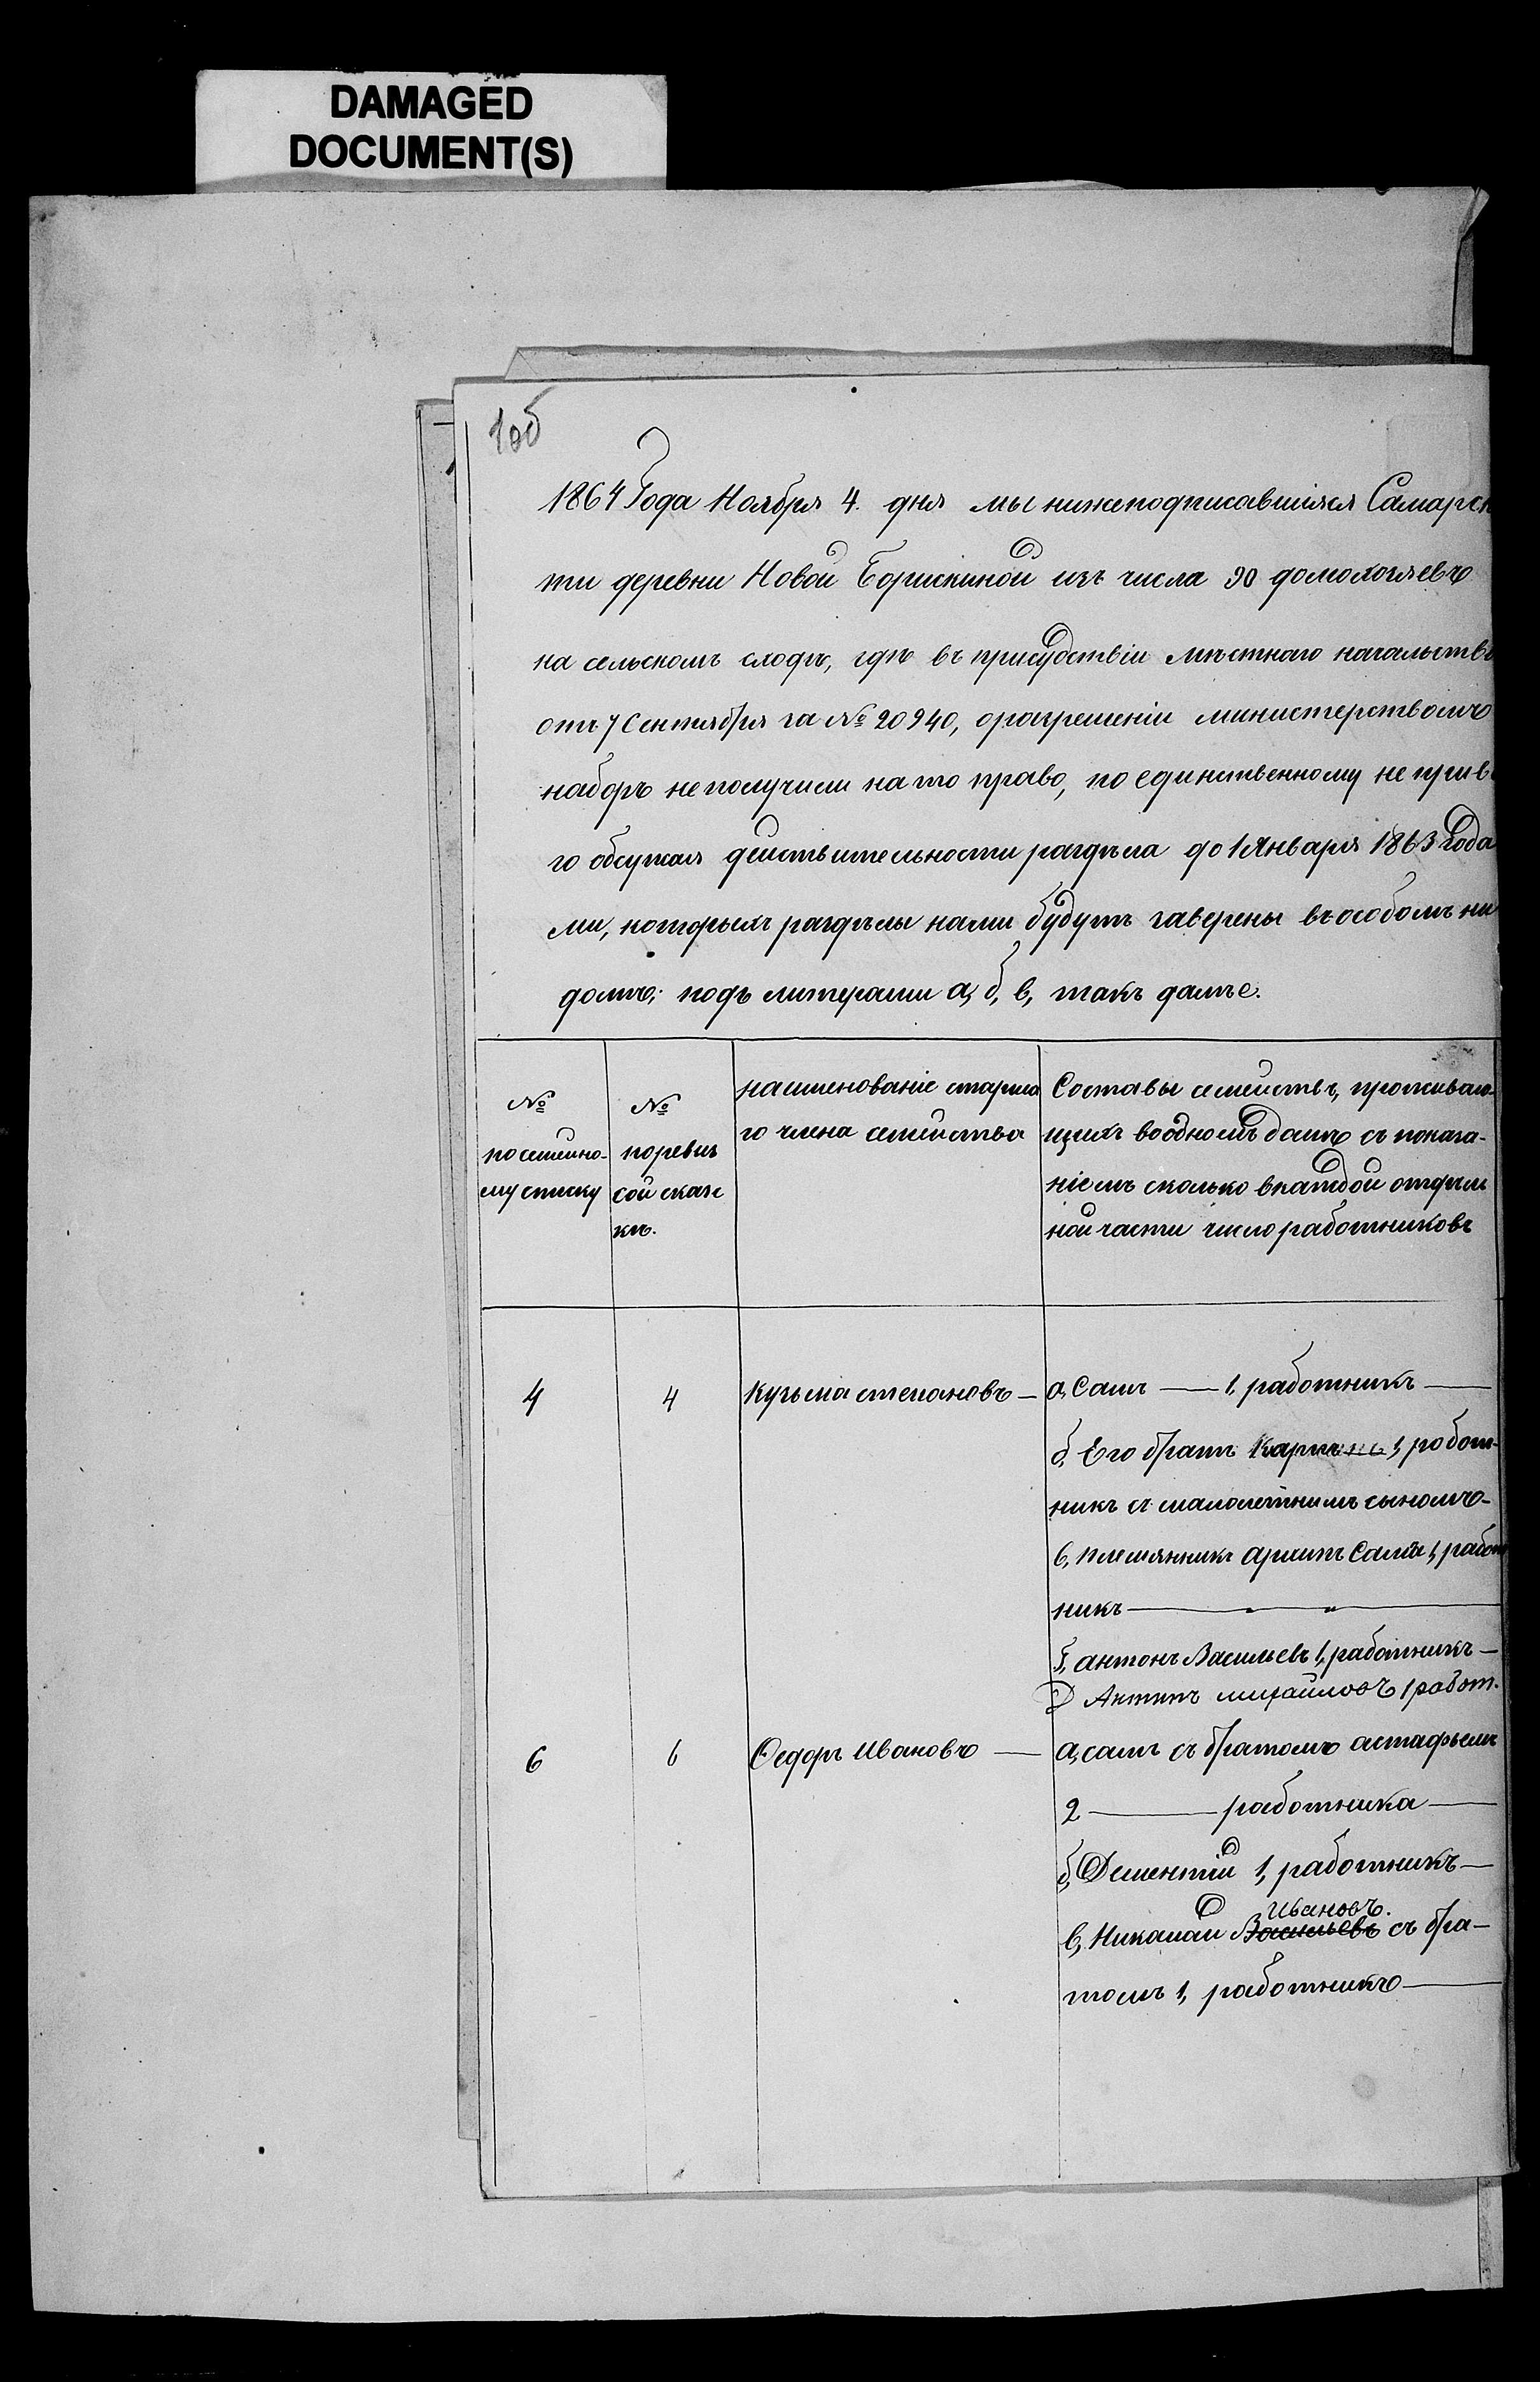 DAMAGED
DOCUMENT(S)
1864 Года Ноября 4. дня мы нижеподписавшіяся Самарск
ти деревни Новой Борискиной изъ числа 90 домохозяевъ
на сельскомъ сходѣ, гдѣ въ присудствіи мѣстнаго начальства
отъ 7 Сентября за № 20940, оразрешеніи министерствомъ
наборъ неполучили на то право, по единственному не прив
го обсужая действительности раздѣла до 1 Января 1863 Года
ми, которыхъ раздѣлы нами будутъ заверены въ особомъ ни
домъ; подъ литерами а, б, в, такъ далѣе.
№
посемейно-
му списку
№
поревиз
сой сказ
кѣ.
наименованіе старша
го члена семейства
Составы семействъ, проживаю-
щихъ водномъ домѣ съ показа-
ніемъ сколько вкаждой отдѣль
ной части число работниковъ
4
4
Кузьма степановъ —
а, Самъ — 1, работникъ —
б, Его братъ Карпъ 1, работ-
никъ съ малолетнимъ сыномъ-
в, племянникъ 1, работ
никъ — " — " —
антонъ Васильевъ 1, работникъ —
Антипъ михайловъ 1 работ.
6
6
Ѳедоръ Ивановъ —
а, самъ съ братомъ астафьемъ
2 — работника —
б, Дементій 1, работникъ —
Ивановъ.
в, Николай Васильевъ съ бра-
томъ 1, работникъ —